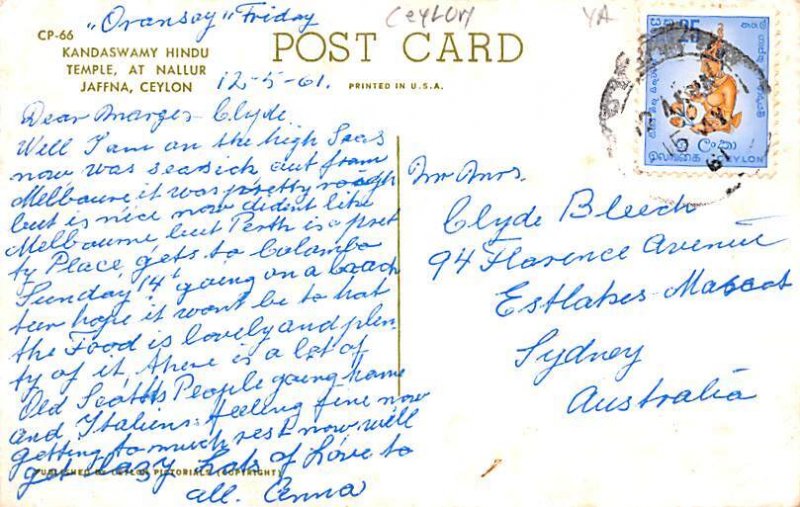 „Oransay" Friday
Ceylon
YA
CP-66
KANDASWAMY HINDU
TEMPLE, AT NALLUR
JAFFNA, CEYLON
12-5-61.
POST CARD
PRINTED IN U.S.A.
25
CEYLON
Dear Marge Clyde.
Well I am on the high Seas
now was seasick out from
Melboure it was pretty rough
but is nice now didn't like
Melbourne, but Perth is a pret
ty Place, gets to Colombo
Sunday 14' going on a beach
teur hope it wont be to hat
the Food is lovely and plen
ty of it, there is a lot of
Old Scotts People going home
and Italiens. feeling fine now
getting to much rest now will
get lazy Lots of Love to
all. Anna
Mr Mrs.
Clyde Bleech
94 Florence Avenue
Estlakes-Mascot
Sydney
Australia
PUBLISHED BY CEYLON PICTORIALS (COPYRIGHT)